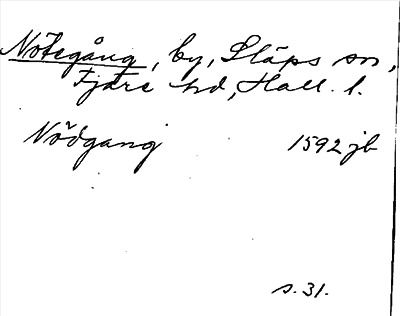 Nötegång, by, Släps sn,
Fjäre hd, Hall. l.
Nödgang 1592 jb
s. 31.